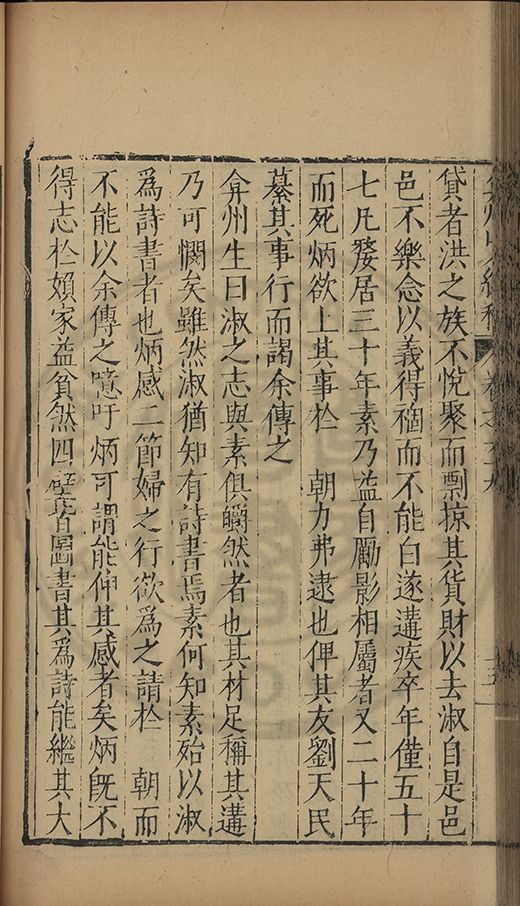 貸者洪之族不悅聚而剽掠其貨財以去淑自是邑
邑不樂念以義得禍而不能白遂遘疾卒年僅五十
七凡嫠居三十年素乃益自勵影相屬者又二十年
而死炳欲上其事於　朝力弗逮也俾其友劉天民
纂其事行而謁余傳之
弇州生曰淑之志與素俱皭然者也其材足稱其遘
乃可憫矣雖然淑猶知有詩書焉素何知素殆以淑
為詩書者也炳感二節婦之行欲為之請於　朝而
不能以余傳之噫吁炳可謂能伸其感者矣炳旣不
得志於頻家益貧然四壁皆圖書其為詩能繼其大